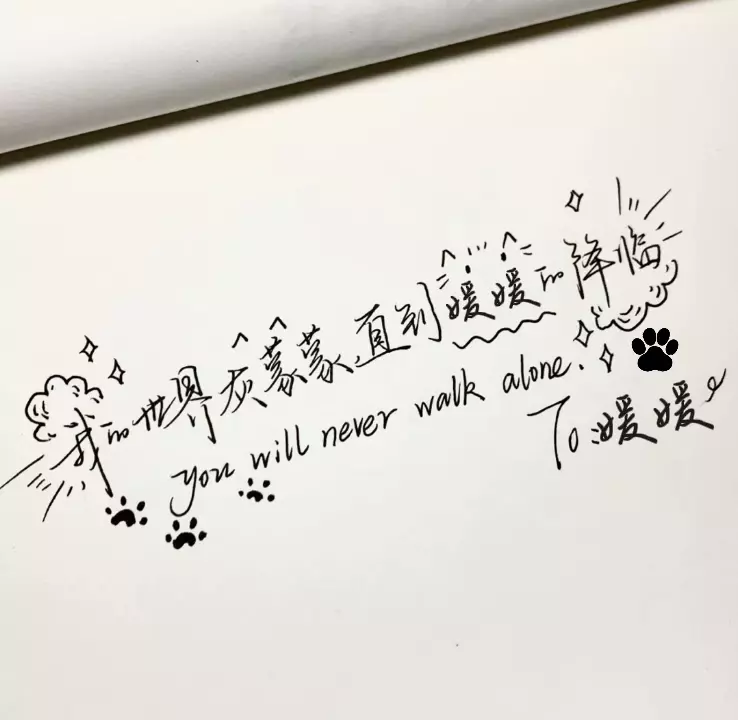 我的世界灰蒙蒙,直到媛媛的降临
you will never walk alone.
To:媛媛